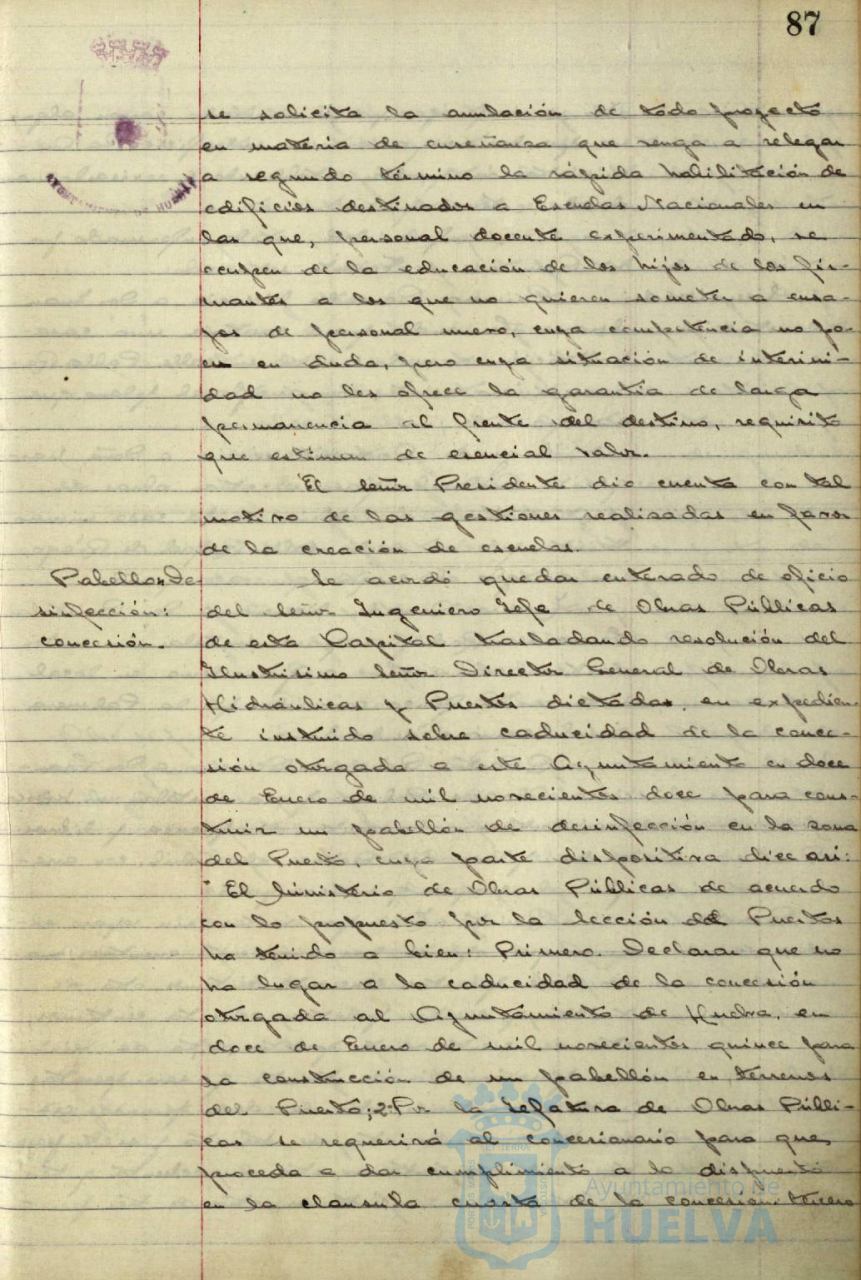 87
AYUNTAMIENTO DE HUELVA
se solicita la anulación de todo proyecto
en materia de enseñanza que venga a relegar
a segundo término la rápida habilitación de
edificios destinados a Escuelas Nacionales en
las que, personal docente experimentado, se
ocupen de la educación de los hijos de los fir-
mantes a los que no quieren someter a ensa-
yos de personal nuevo, cuya competencia no po-
en en duda, pero cuya situación de interini-
dad no les ofrece la garantía de larga
permanencia al frente del destino, requisito
que estiman de esencial valor.
El Señor Presidente dio cuenta con tal
motivo de las gestiones realizadas en favor
de la creación de escuelas.
Pabellon De-
sinfección:
concesión.
Se acordó quedar enterado de oficio
del Señor Ingeniero Jefe de Obras Públicas
de esta Capital trasladando resolución del
Ilustrisimo Señor Director General de Obras
Hidráulicas y Puertos dictada, en expedien-
te instruido sobre caducidad de la conce-
sión otorgada a este Ayuntamiento en doce
de Enero de mil novecientos doce para cons-
truir un pabellón de desinfección en la zona
del Puerto, cuya parte dispositiva dice así:
"El Ministerio de Obras Públicas de acuerdo
con lo propuesto por la Sección de Puertos
ha tenido a bien: Primero. Declarar que no
ha lugar a la caducidad de la concesión
otorgada al Ayuntamiento de Huelva, en
doce de Enero de mil novecientos quince para
la construcción de un pabellón en terrenos
del Puerto; 2º Por la Jefatura de Obras Públi-
cas se requerirá al concesionario para que,
proceda a dar cumplimiento a lo dispuesto
en la clausula cuarta de la concesión. tercero
Ayuntamiento de
HUELVA